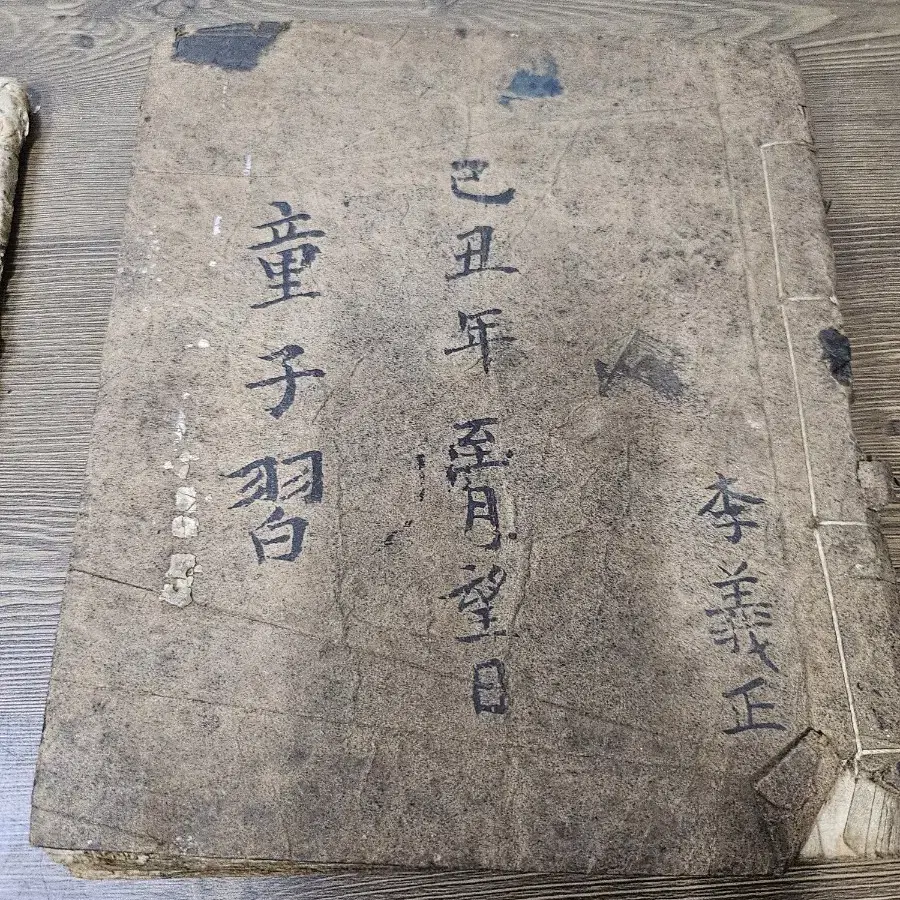 李義正
己丑年至月望日
童子習